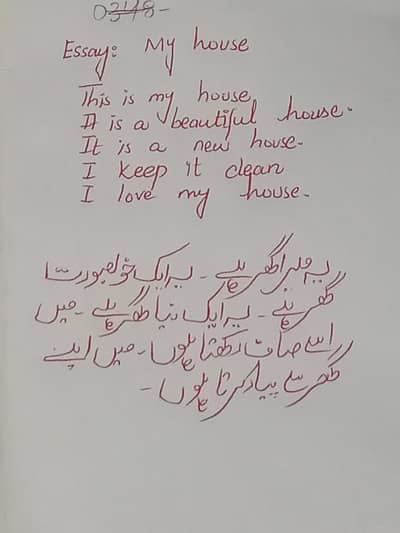 03448-
Essay: My house
This is my house
It is a beautiful house.
It is a new house.
I keep it clean
I love my house.
یہ میرا گھر ہے ۔ یہ ایک خوبصورت
گھر ہے ۔ یہ ایک نیا گھر ہے ۔ میں
اسے صاف رکھتا ہوں ۔ میں اپنے
گھر سے پیار کرتا ہوں ۔